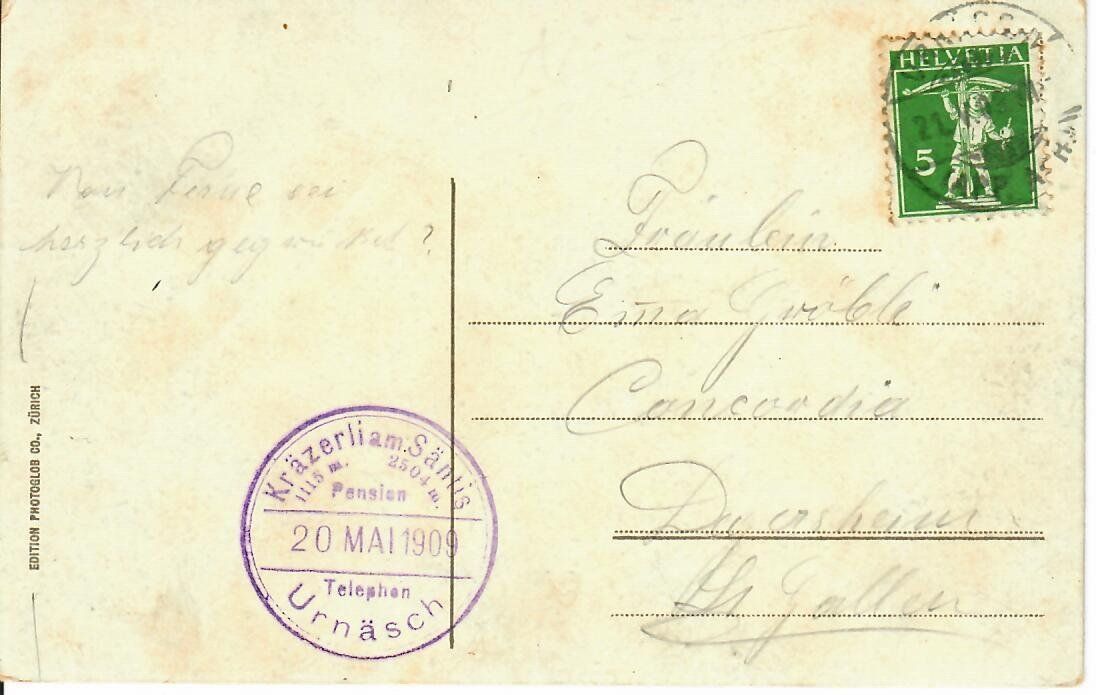 HELVETIA
5
Von Ferne sei
herzlich gegrüsst?
Fräulein
Emma Gröbli
Concordia
Degersheim
St. Gallen
EDITION PHOTOGLOB CO., ZÜRICH
Kräzerli am Säntis
1115 m. 2504 m.
Pension
20 MAI 1909
Telephon
Urnäsch